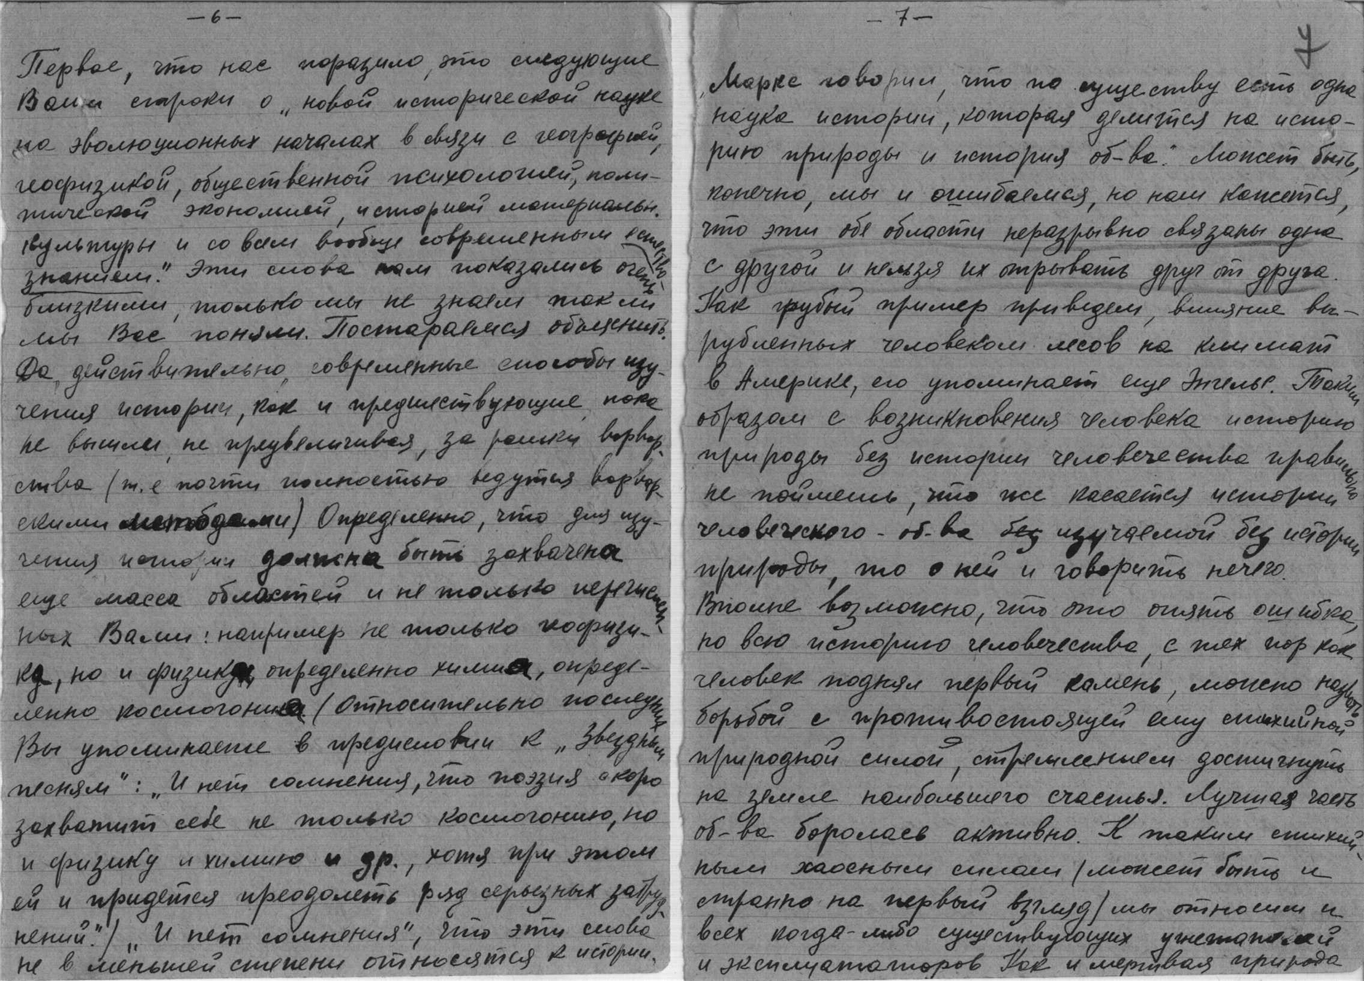 —6—
Первое, что нас поразило, это следующие
Ваши строки о „новой исторической науке
на эволюционных началах в связи с географией,
геофизикой, общественной психологией, поли-
тической экономией, историей материальн.
культуры и со всем вообще современным естество-
знанием." Эти слова нам показались очень
близкими, только мы не знаем так ли
мы Вас поняли. Постараемся объяснить.
Да, действительно, современные способы изу-
чения истории, как и предшествующие, пока
не вышли, не преувеличивая, за рамки варвар-
ства (т.е почти полностью ведутся варвар-
скими методами) Определенно, что для изу-
чения истории должна быть захвачена
еще масса областей и не только перечислен-
ных Вами: например не только геофизи-
ка, но и физика, определенно химия, опреде-
ленно космогония (Относительно последних
Вы упоминаете в предисловии к „Звездным
песням": „И нет сомнения, что поэзия скоро
захватит себе не только космогонию, но
и физику и химию и др., хотя при этом
ей и придется преодолеть ряд серьезных затруд-
нений".) „И нет сомнения", что эти слова
не в меньшей степени относятся к истории.
—7—
7
„Маркс говорил, что по существу есть одна
наука истории, которая делится на исто-
рию природы и история об-ва." Может быть,
конечно, мы и ошибаемся, но нам кажется,
что эти обе области неразрывно связаны одна
с другой и нельзя их отрывать друг от друга.
Как грубый пример приведем, влияние вы-
рубленных человеком лесов на климат
в Америке, его упоминает еще Энгельс. Таким
образом с возникновения человека историю
природы без истории человечества правильно
не поймешь, что же касается истории
человеческого об-ва без изучаемой без истории
природы, то о ней и говорить нечего.
Вполне возможно, что это опять ошибка,
но всю историю человечества, с тех пор как
человек поднял первый камень, можно назвать
борьбой с противостоящей ему стихийной
природной силой, стремлением достигнуть
на земле наибольшего счастья. Лучшая часть
об-ва боролась активно. К таким стихий-
ным хаосным силам (может быть и
странно на первый взгляд) мы относим и
всех когда-либо существующих угнетателей
и эксплуататоров Как и мертвая природа